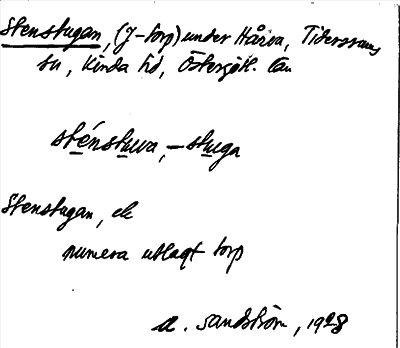 Stenstugan, (J-torp) under Hårva, Tidersrums
sn, Kinda hd, Östergötl. län
sténstuwa, -stuga
Stenstugan, ek
numera utlagt torp
A. Sandström, 1928